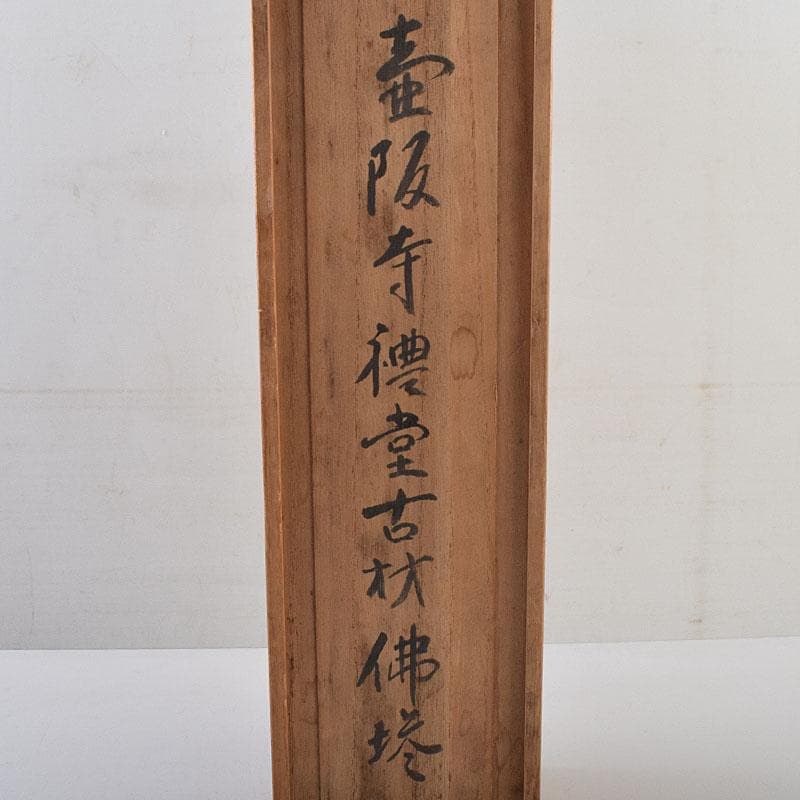 壷阪寺禮堂古材佛塔